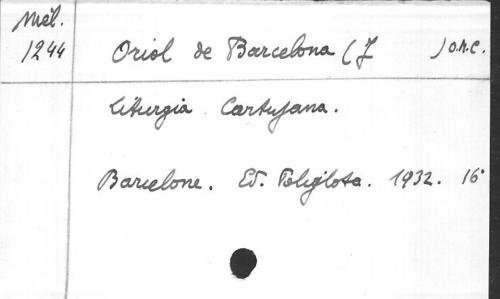 Mél.
1244
Oriol de Barcelona (J      ) o.m.c.
Liturgia Cartujana.
Barcelone. Ed. Poliglota. 1932. 16°